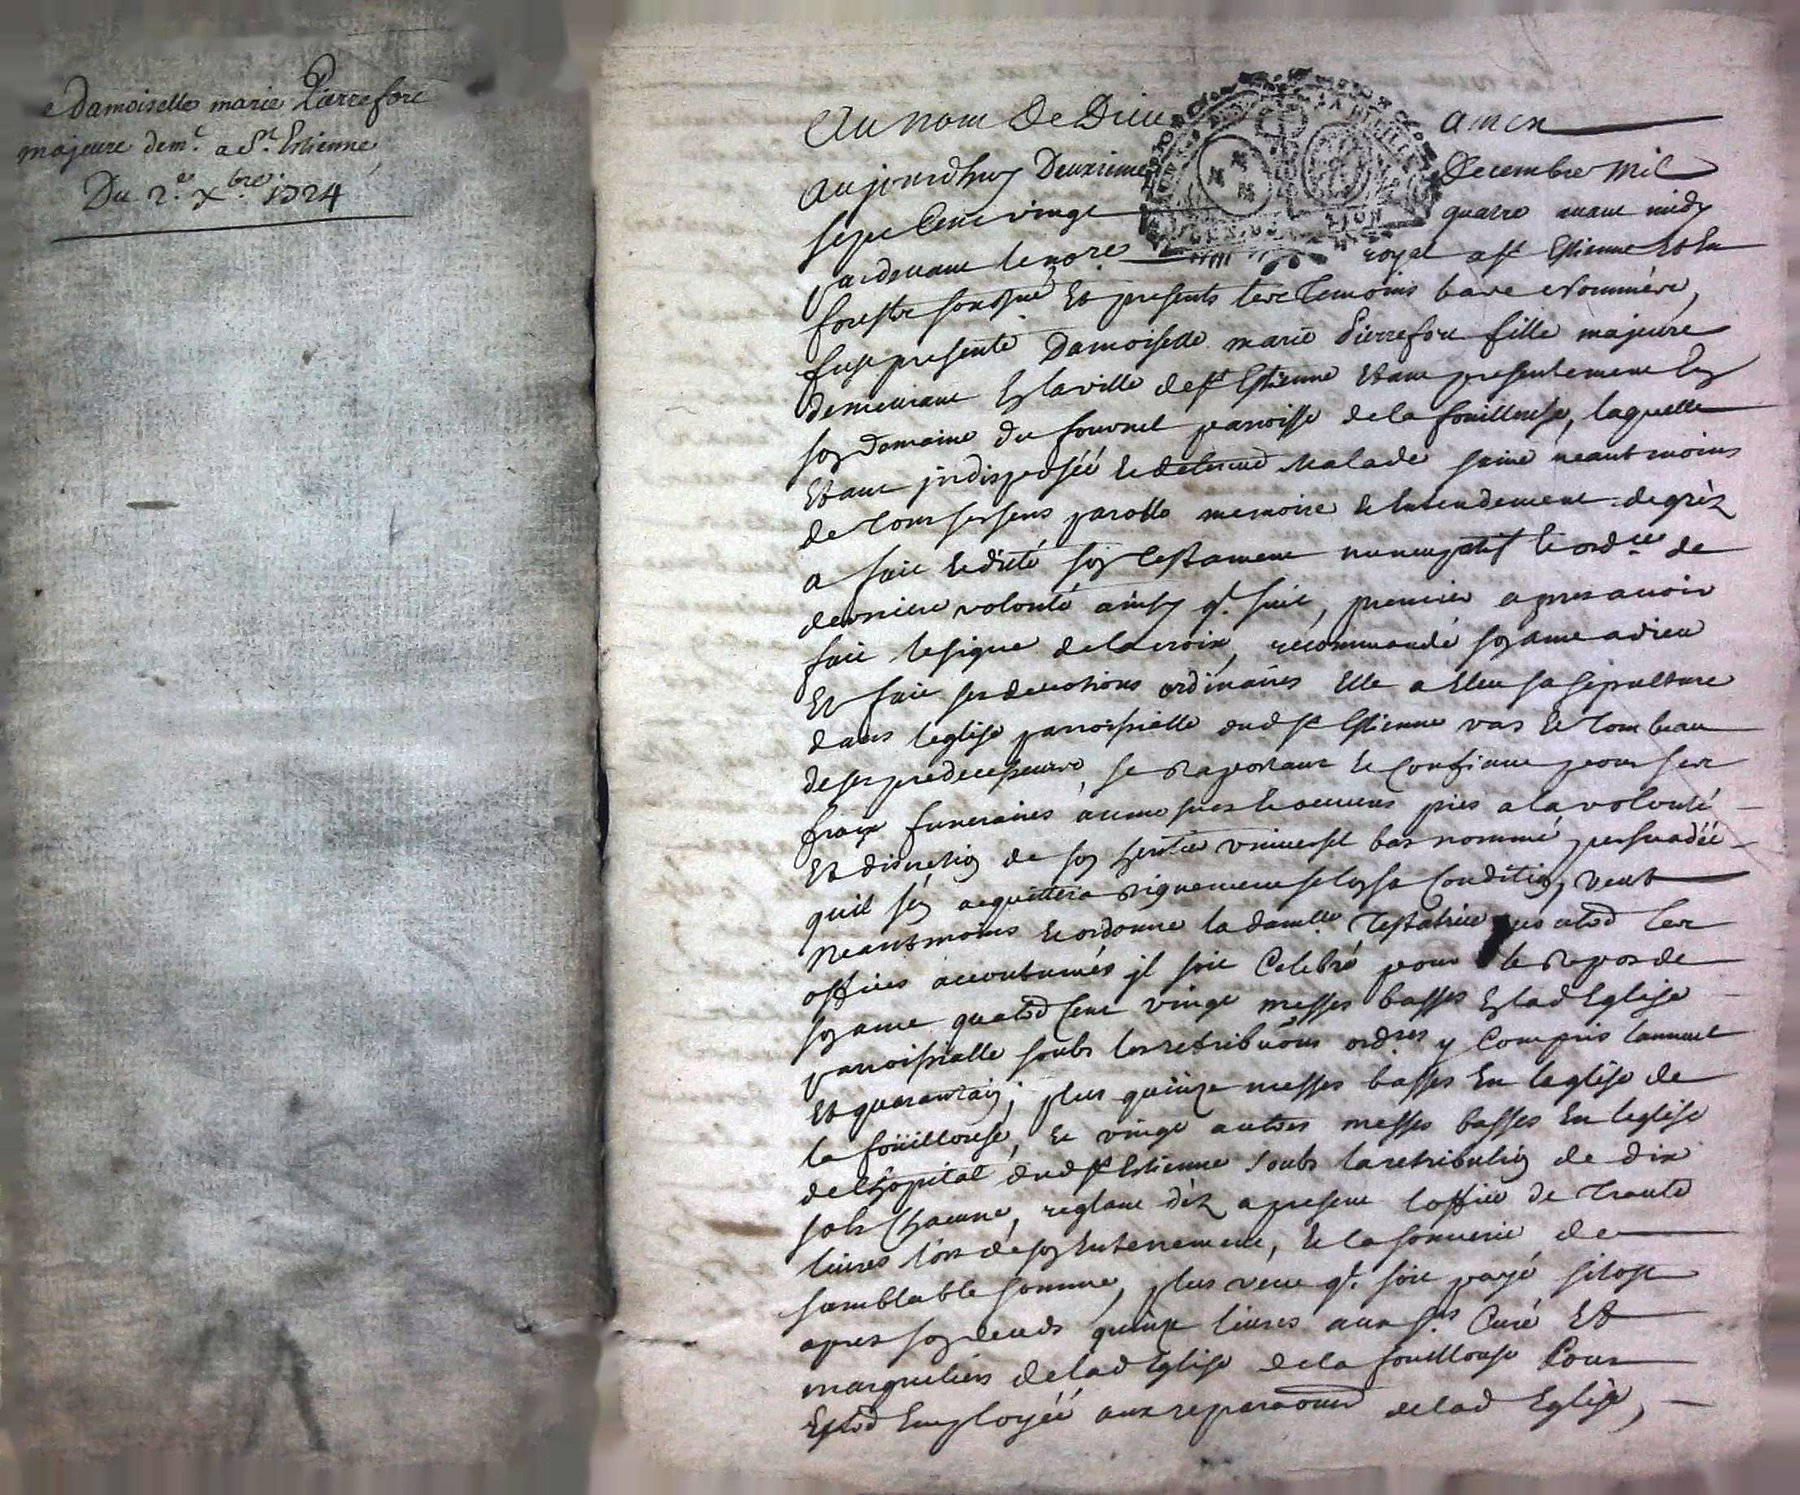 Damoiselle marie Pierrefort
majeure dem.t a S.t Estienne
Du 2.e Xbre. 1724
Au nom De Dieu amen
Aujourdhuy Deuxieme Decembre Mil
sept Cent vingt quatre avant midy
pardevant le nore royal a st Estienne Et En
forestz soubsigné Et presents les temoins bas nommés,
fust presente Damoiselle marie Pierrefort fille majeure
demeurant En la ville de st Estienne Etant presentement En
son domaine du fournel parroisse de la fouillouse, laquelle
Etant indisposée et detenue Malade saine neantmoins
de tous ses sens parolle memoire et Entendement de grèz
a fait et dicté son testament nuncupatif et ord.ce de
derniere volonté ainsy q. suit, premier apres avoir
fait le signe de la croix, recommandé son ame a dieu
Et fait ses devotions ordinaires Elle a Eleu sa sepulture
dans leglise parroissialle dud st Estienne vas et tombeau
de ses predecesseurs, se raportant et Confiant pour ses
fraix funeraires aumosnes et oeuvres pies a la volonté
Et discretion de son heritier universel bas nommé persuadée
quil sen acquittera dignement selon sa Condition, veut
Neantmoins et ordonne la dam.lle testatrice les
offices accoutumés il soit Celebré pour le repos de
son ame quatre Cent vingt messes basses En lad Eglise
parroissialle soubs les retributions ordres y Compris lannuel
Et quarantain; plus quinze messes basses En leglise de
la foüillouse, et vingt autres messes basses En leglise
de lhopital dud st Estienne soubs la retribution de dix
sols Chacune, reglant dèz a present loffice de trante
livres lors de son Enterrement, et la sonnerie de
samblable somme, plus veut q. soit payé sitost
apres son deceds quinze livres aux srs Curé Et
marguiliers de lad Eglise de la fouillouse Pour
Estre Employée aux reparaons de lad Eglise,